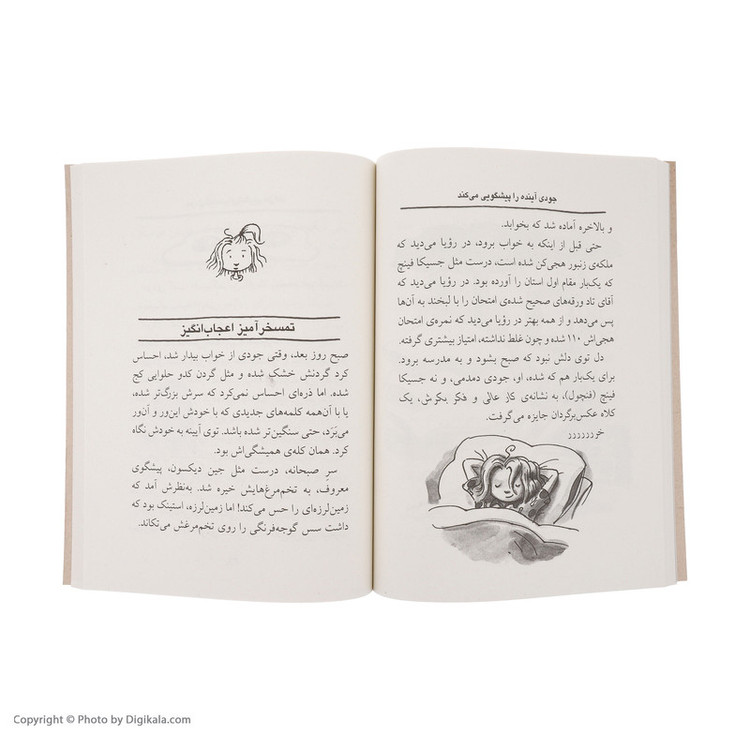 جودی آینده را پیشگویی می‌کند
و بالاخره آماده شد که بخوابد.
حتی قبل از اینکه به خواب برود، در رؤیا می‌دید که
ملکه‌ی زنبور هجی‌کن شده است، درست مثل جسیکا فینچ
که یک‌بار مقام اول استان را آورده بود. در رؤیا می‌دید که
آقای تاد ورقه‌های صحیح شده‌ی امتحان را با لبخند به آن‌ها
پس می‌دهد و از همه بهتر در رؤیا می‌دید که نمره‌ی امتحان
هجی‌اش ۱۱۰ شده و چون غلط نداشته، امتیاز بیشتری گرفته.
دل توی دلش نبود که صبح بشود و به مدرسه برود.
برای یک‌بار هم که شده، او، جودی دمدمی، و نه جسیکا
فینچ (فنچول)، به نشانه‌ی کار عالی و فکر بکرش، یک
کلاه عکس‌برگردان جایزه می‌گرفت.
خرررررر
تمسخرآمیز اعجاب‌انگیز
صبح روز بعد، وقتی جودی از خواب بیدار شد، احساس
کرد گردنش خشک شده و مثل گردن کدو حلوایی کج
شده. اما ذره‌ای احساس نمی‌کرد که سرش بزرگ‌تر شده،
یا با آن‌همه کلمه‌های جدیدی که با خودش این‌ور و آن‌ور
می‌بَرَد، حتی سنگین‌تر شده باشد. توی آیینه به خودش نگاه
کرد. همان کله‌ی همیشگی‌اش بود.
سرِ صبحانه، درست مثل جین دیکسون، پیشگوی
معروف، به تخم‌مرغ‌هایش خیره شد. به‌نظرش آمد که
زمین‌لرزه‌ای را حس می‌کند! اما زمین‌لرزه، استینک بود که
داشت سس گوجه‌فرنگی را روی تخم‌مرغش می‌تکاند.
Copyright © Photo by Digikala.com